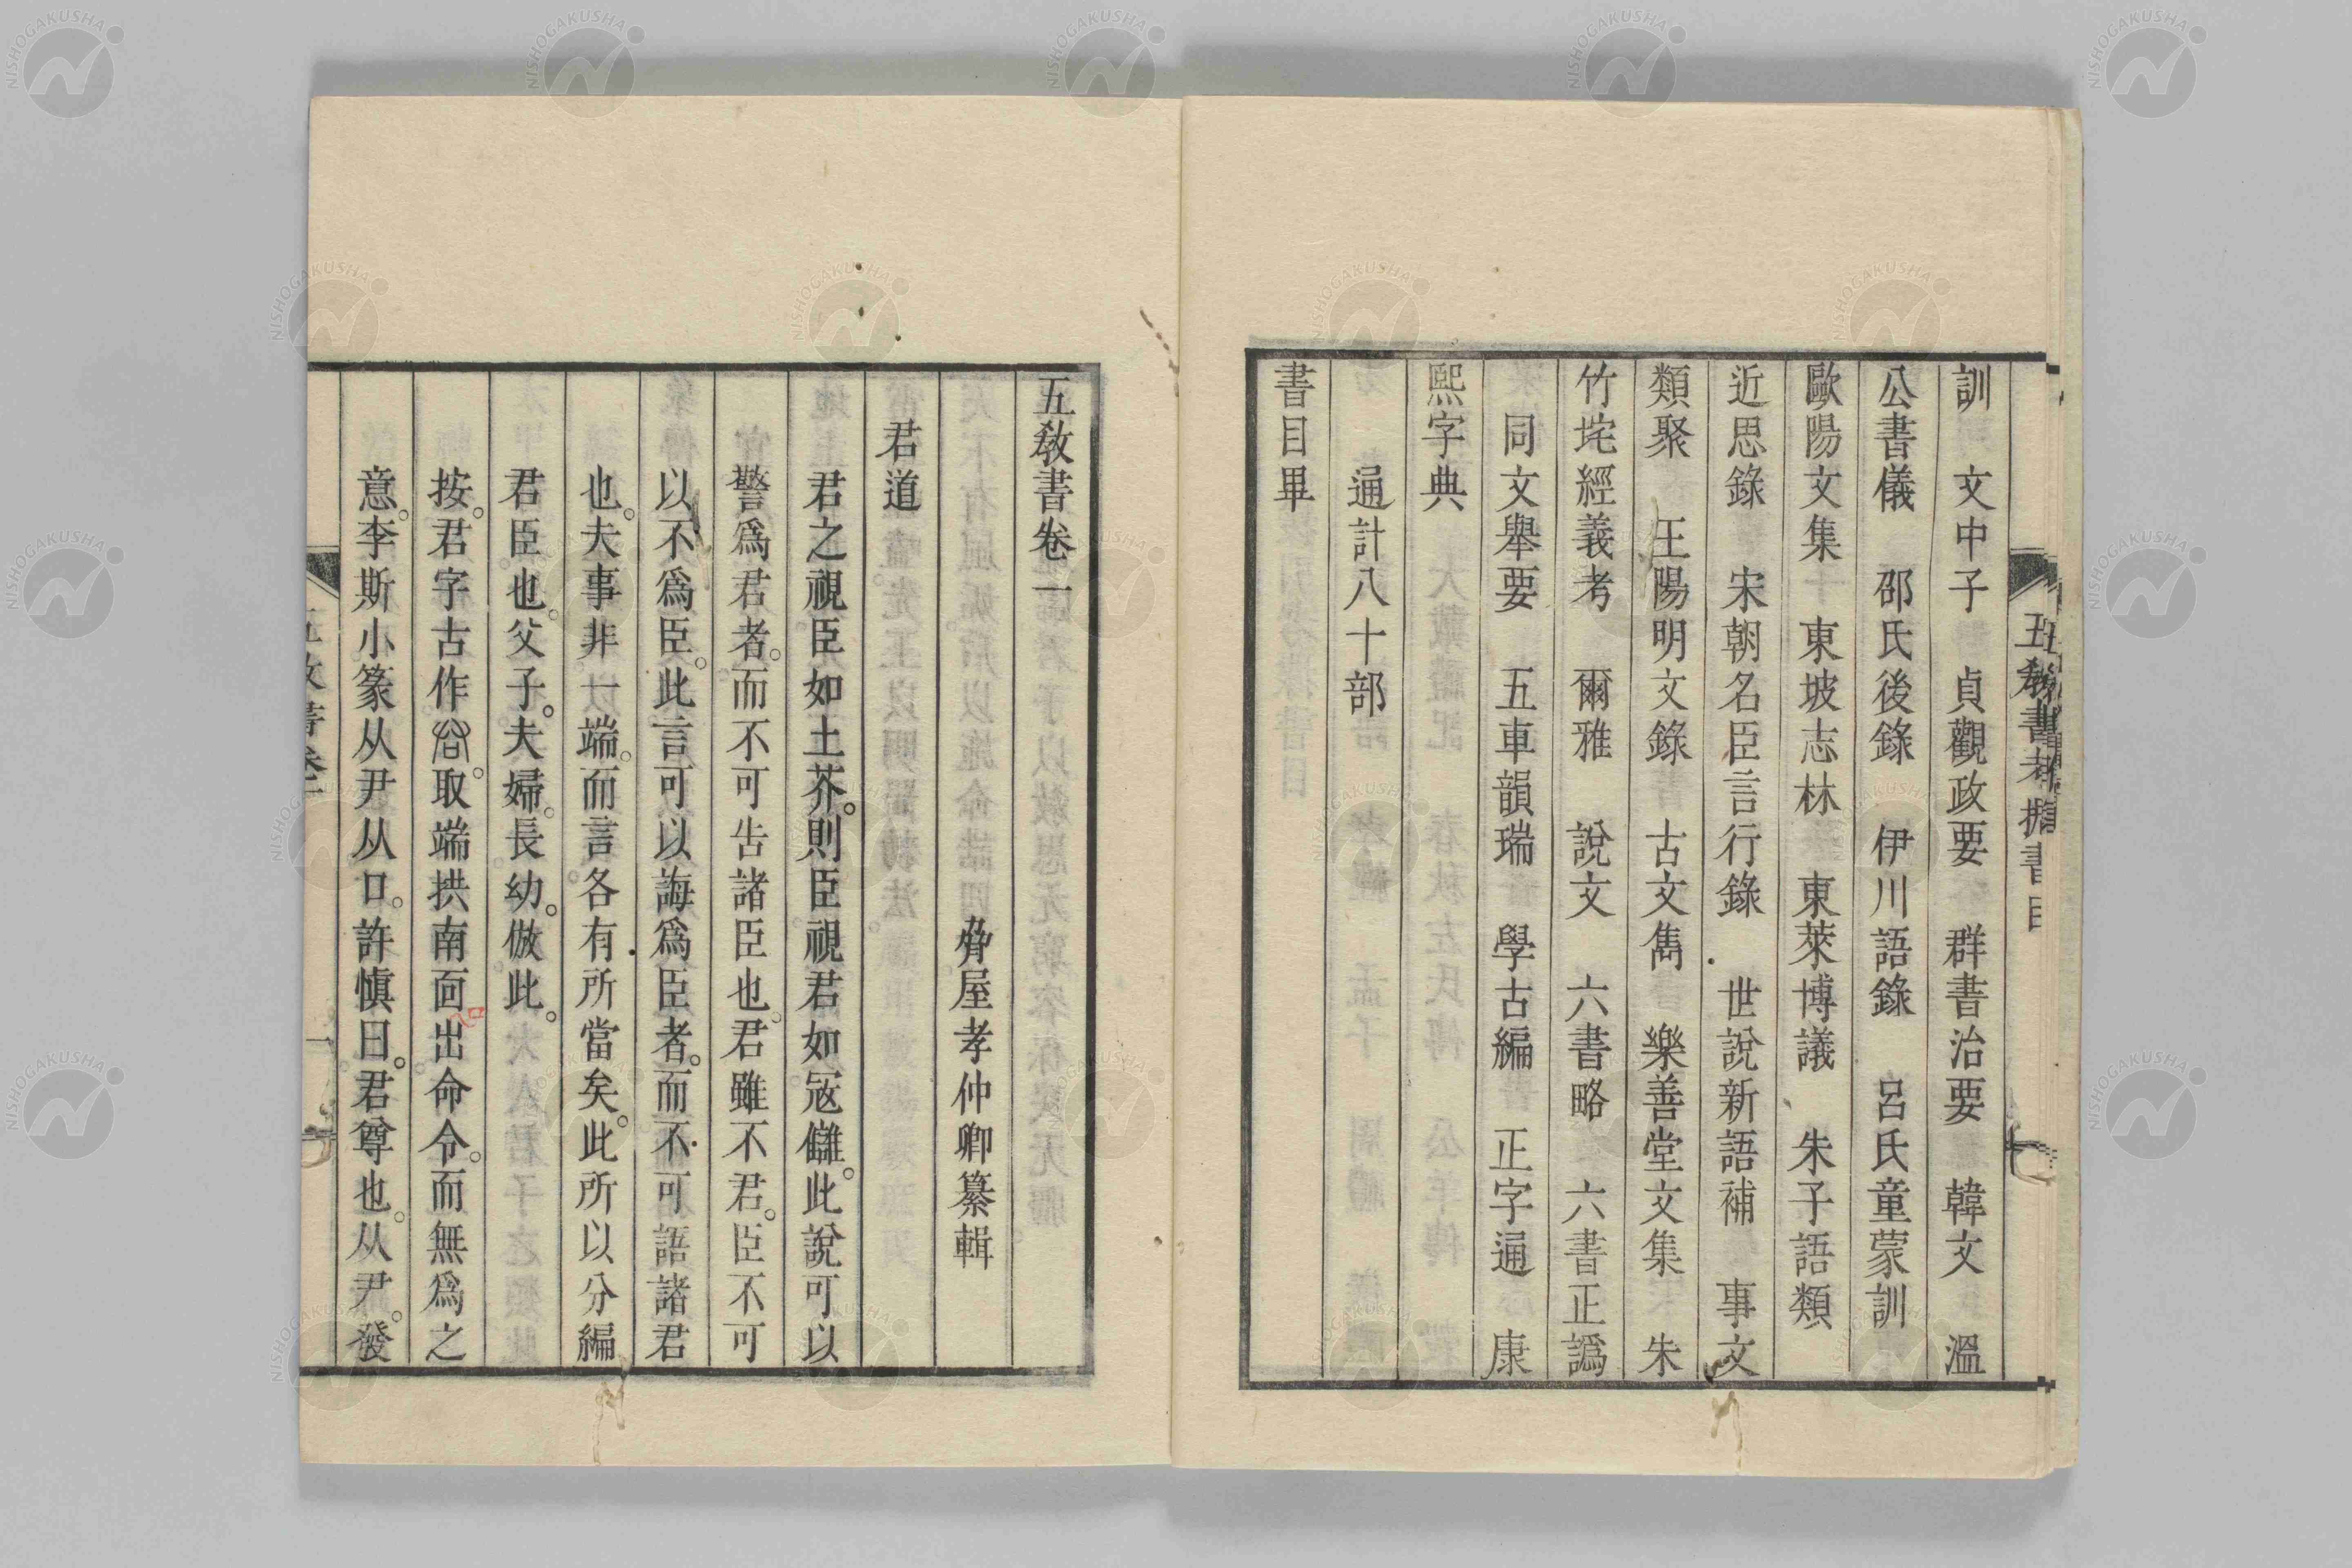 訓　文中子　貞觀政要　群書治要　韓文　溫
公書儀　邵氏後錄　伊川語錄　呂氏童蒙訓
歐陽文集　東坡志林　東萊博議　朱子語類
近思錄　宋朝名臣言行錄　世說新語補　事文
類聚　王陽明文錄　古文雋　樂善堂文集　朱
竹垞經義考　爾雅　說文　六書略　六書正譌
同文舉要　五車韻瑞　學古編　正字通　康
熙字典
通計八十部
書目畢
五敎書卷一
脅屋孝仲卿纂輯
君道
君之視臣如土芥。則臣視君如寇讎。此說可以
警爲君者。而不可告諸臣也。君雖不君。臣不可
以不爲臣。此言可以誨爲臣者。而不可語諸君
也。夫事非一端。而言各有所當矣。此所以分編
君臣也。父子。夫婦。長幼。倣此。
按。君字古作。取端拱南面出命令。而無爲之
意。李斯小篆从尹从口。許愼曰。君尊也。从尹。發
NISHOGAKUSHA